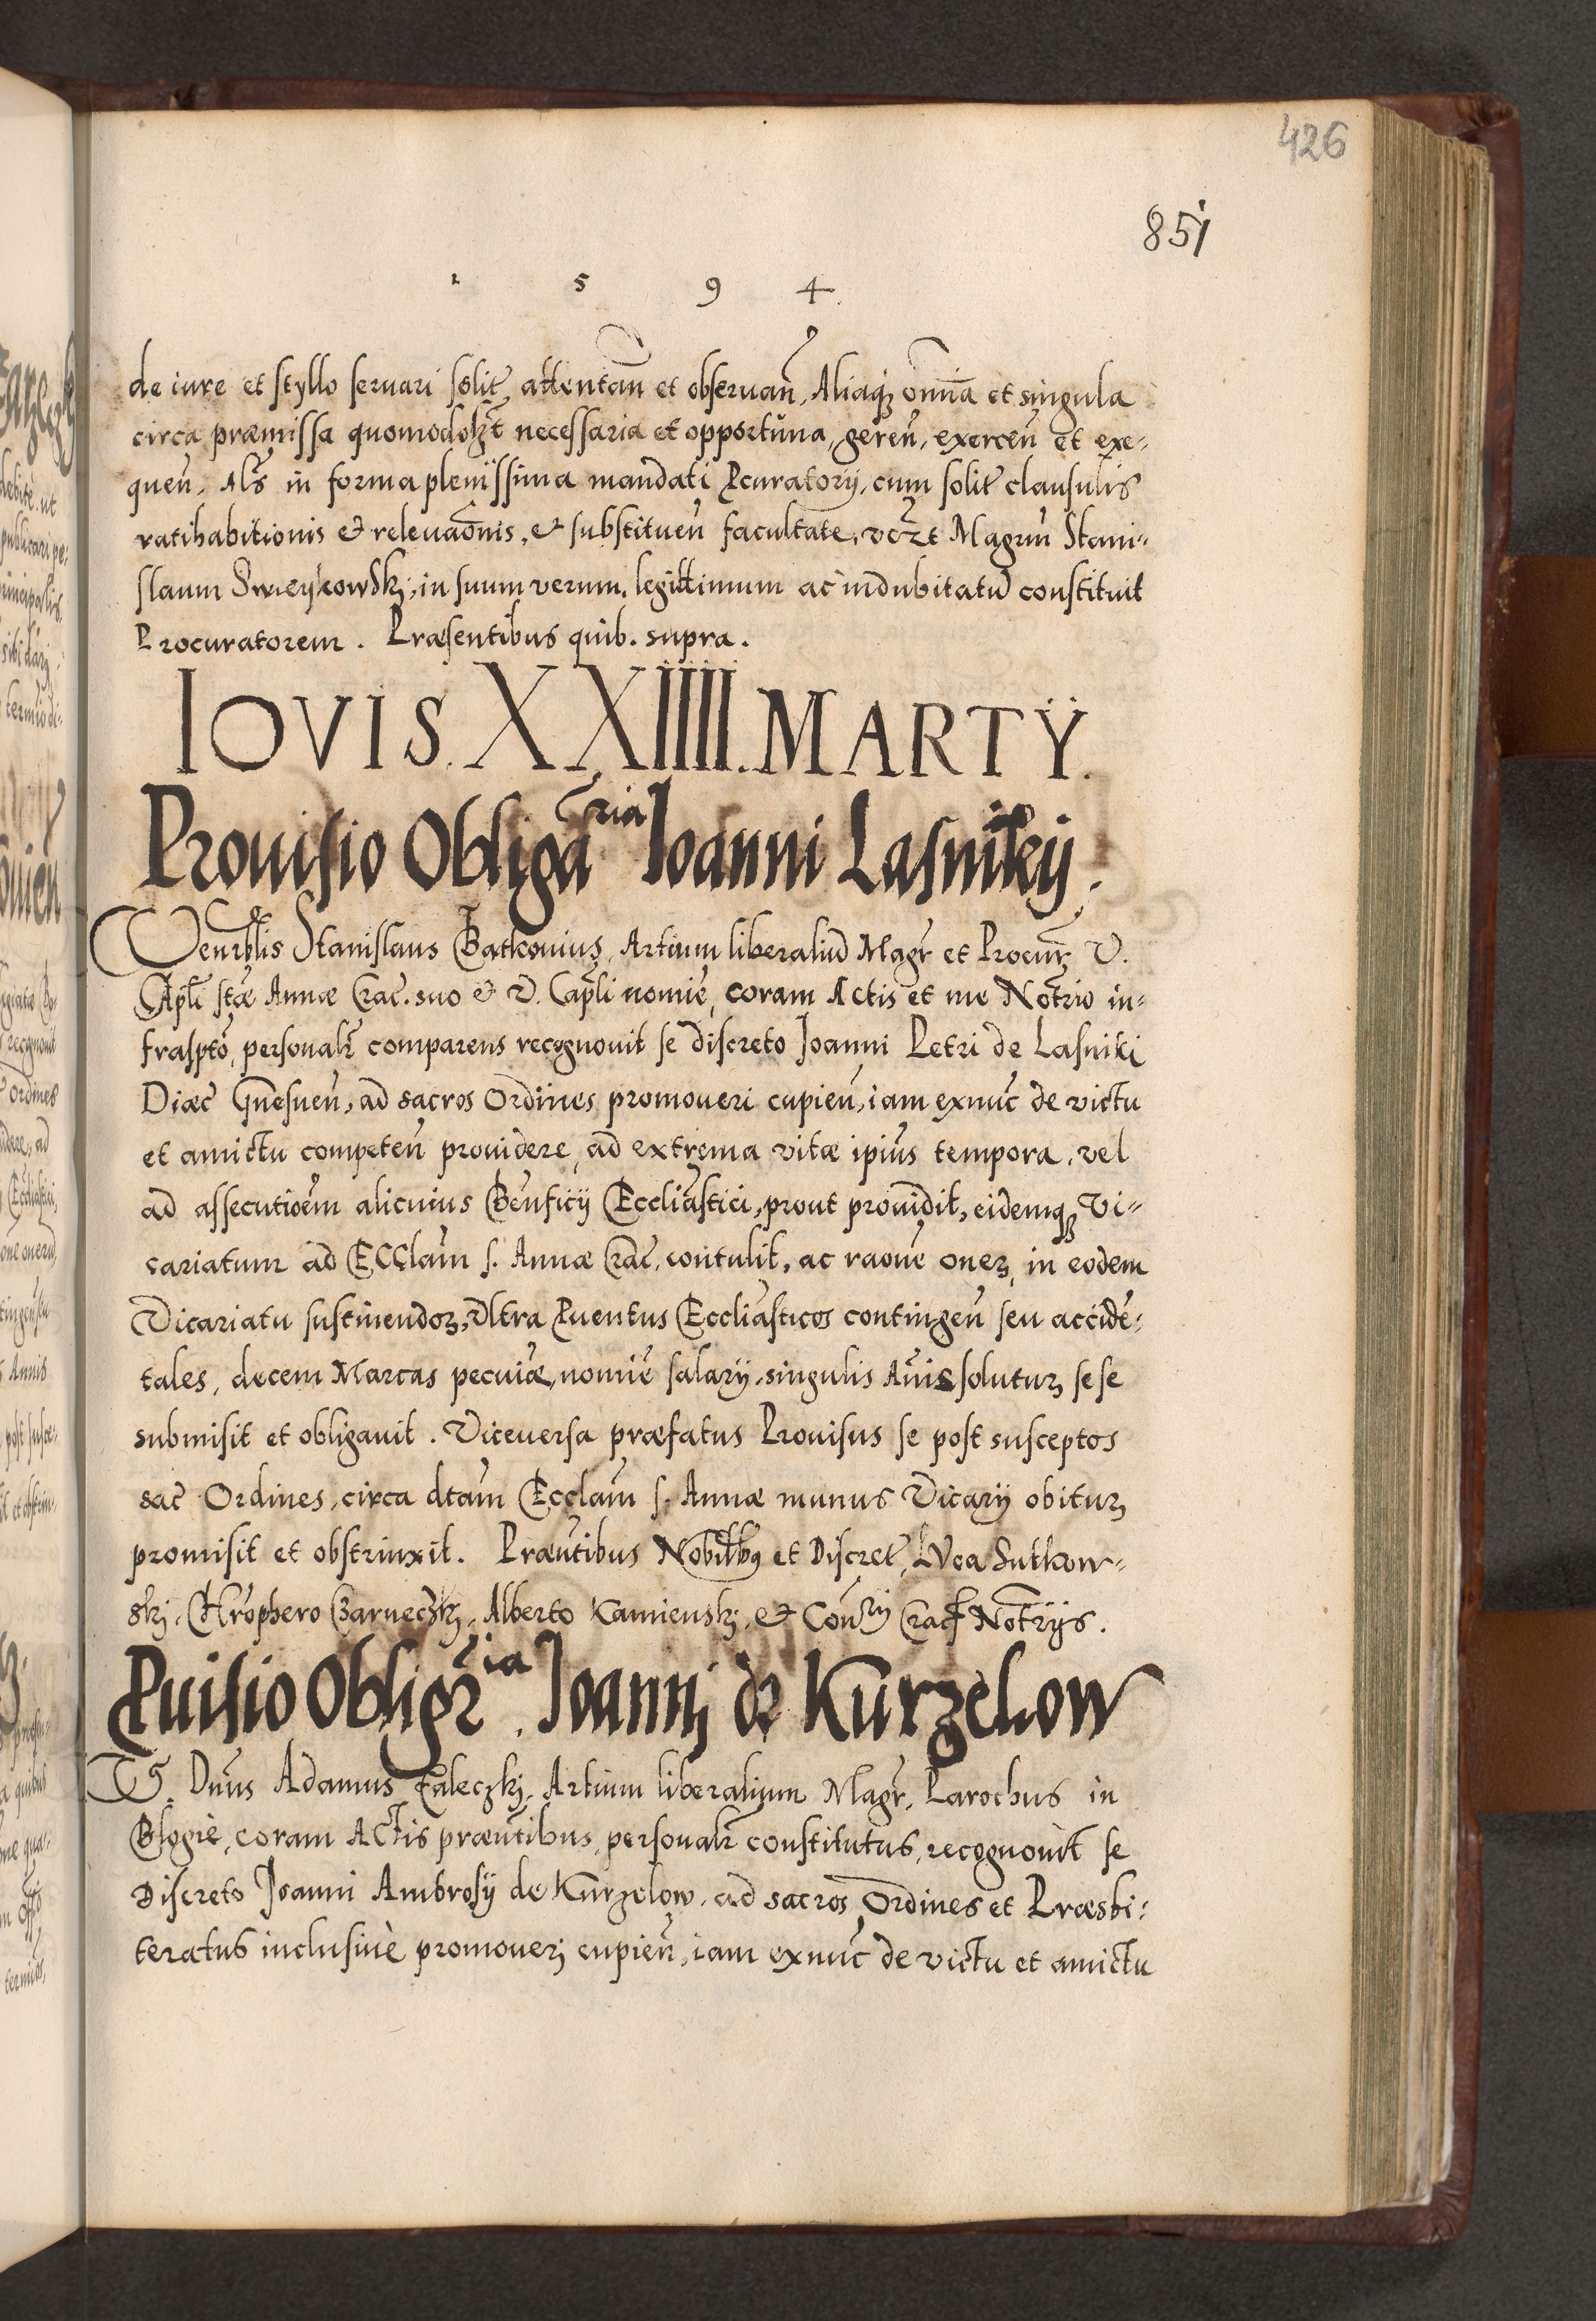 426
851
1 5 9 4.
de iure et styllo seruari solit̃, attentañ et obseruañ, Aliaq₃ om̃ia et singula
circa præmissa quomodolꝫt necessaria et opportuna, gereñ, exerceñ et exe-
queñ. Als̃ in forma plenissima mandati ꝓcuratorij, cum solit̃ clausulis
ratihabitionis et releuaõnis, et substitueñ facultate, vꝫt Magrm̃ Stani-
slaum Swieykowskj, in suum verum, legittimum ac indubitatũ constituit
Procuratorem. Præsentibus quib. supra.
IOVIS. XXIIII. MARTŸ.
Prouisio Obligãria Joanni Lasnikij.
Venrblis Stanislaus Batkouius, Artium liberaliũ Magr̃ et Procur̃ V.
Capli stæ Annæ Crac̃. suo et V. Capli nomiẽ, coram Actis et me Notrio in-
frasptõ, personalr̃ comparens recognouit se discreto Joanni Petri de Lasniki
Diæc̃ Gnesneñ, ad sacros Ordines promoueri cupieñ, iam exnũc de victu
et amictu competeñ prouidere, ad extrema vitæ ipiũs tempora, vel
ad assecutioẽm alicuius Beñficij Eccliãstici, prout prouidit, eidemq₃ Vi-
cariatum ad Ecclam̃ S. Annæ Crac̃, contulit, ac raoñe onerꝫ, in eodem
Vicariatu sustinendorꝫ, Vltra ꝓuentus Eccliãsticos contingeñ seu accidẽ-
tales, decem Marcas pecuiæ, nomiẽ salarij, singulis Añis soluturꝫ sese
submisit et obligauit. Viceuersa præfatus Prouisus se post susceptos
sac̃ Ordines, circa dtam̃ Ecclam̃ S. Annæ munus Vicarij obiturꝫ
promisit et obstrinxit. Præntibus Nobilbꝰ et Discret̃, Luca Sutkow-
skj, Chrophero Czarneczkj, Alberto Kamienskj, et Conrij Crac̃ Notrijs.
ꝓuisio Obligr̃ia. Joannj de Kurzelow
V. Dnus Adamus Faleczkj, Artium liberalium Magr̃, Parochus in
Blogie, coram Actis præntibus, personalr̃ constitutus, recognouit se
Discreto Joanni Ambrosij de Kurzelow, ad sacros Ordines et Præsbi-
teratus inclusiuè promouerj cupieñ, iam exnũc de victu et amictu